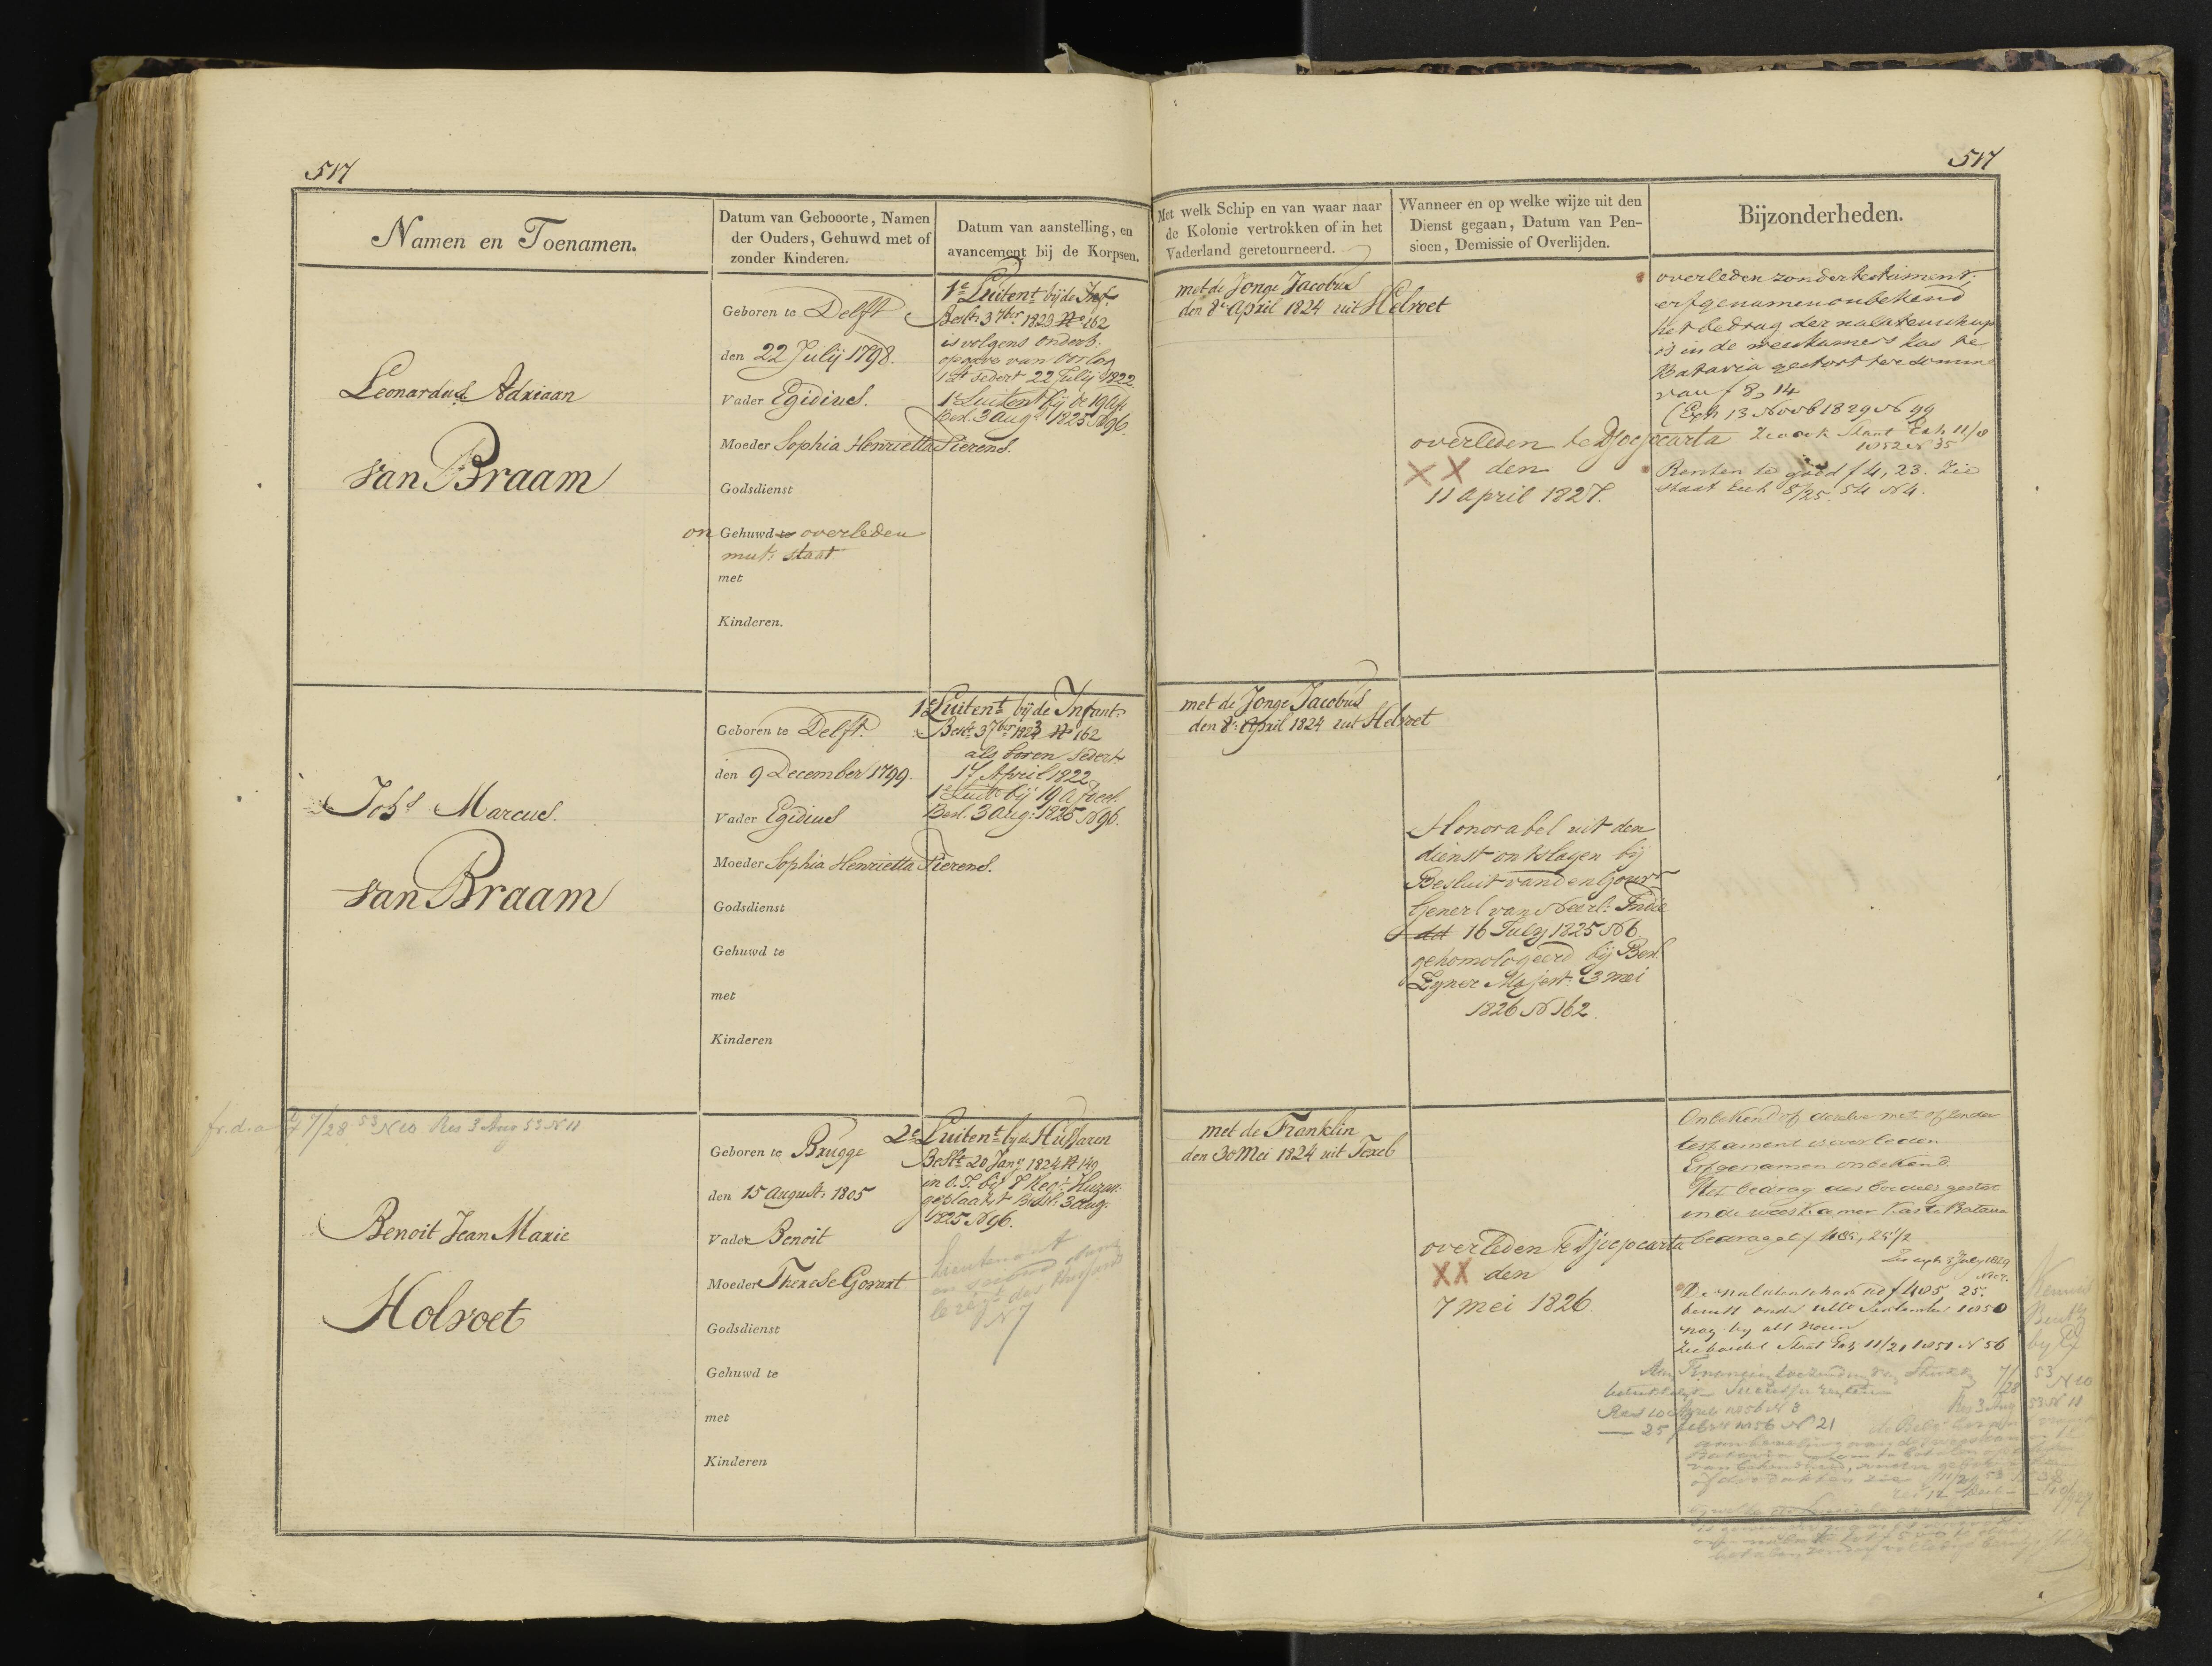 517
517
Namen en Toenamen.
Datum van Gebooorte, Namen
der Ouders, Gehuwd met of
zonder Kinderen.
Datum van aanstelling, en
avancement bij de Korpsen.
Met welk Schip en van waar naar
de Kolonie vertrokken of in het
Vaderland geretourneerd.
Wanneer en op welke wijze uit den
Dienst gegaan, Datum van Pen-
sioen, Demissie of Overlijden.
Bijzonderheden.
Leonardus Adriaan
van Braam
Geboren te Delft
den 22 Julij 1798.
Vader Egidius.
Moeder Sophia Henrietta Pierens.
Godsdienst
on Gehuwd te overleden
mut: staat
met
Kinderen.
1e Luitent bij de Inf.
Beslt 3 7ber 1823 No 162
is volgens onderh:
opgave van Oorlog
1 Lt sedert 22 Julij 1822.
1e Luitent bij de 19 Afd
Besl. 3 Augs 1825 N 96.
met de Jonge Jacobus
den 8e April 1824 uit Helvoet
overleden te Djocjocarta
XX den
11 April 1827.
overleden zonder testament,
erfgenamen onbekend
het bedrag der nalatenschap
is in de weeskamers kas te
Batavia gestort ter somme
van f 8,14
(Exh 13 Novb 1829 N 99
Zie ook Staat Exh 11/8
1852 N 35
Renten te goed f 4,23. Zie
staat Exh 8/25 54 N 4.
Johs Marcus.
van Braam
Geboren te Delft.
den 9 December 1799.
Vader Egidius
Moeder Sophia Henrietta Pierens.
Godsdienst
Gehuwd te
met
Kinderen
1e Luitent bij de Infant:
Beslt 3 7ber 1823 No 162
als boven sedert
17 April 1822
1e Luit bij 19 Afdeel.
Besl. 3 Aug: 1825 N 96.
met de Jonge Jacobus
den 8e April 1824 uit Helvoet
Honorabel uit den
dienst ontslagen bij
Besluit van den Gouvr
Generl van Neerl: Indie
dd 16 July 1825 N 6
gehomologeerd bij Besl.
Zyner Majest: 3 mei
1826 N 162.
7/28 53 N 10 Res 3 Aug 53 N 11
Benoit Jean Marie
Holvoet
Geboren te Brugge
den 15 August: 1805
Vader Benoit
Moeder Therese Govart
Godsdienst
Gehuwd te
met
Kinderen
2e Luitent bij de Hussaren
Beslt 20 Jany 1824 N 149
in O.I. bij 7 Regt: Huzar:
geplaatst Besl: 3 Aug.
1825 N 96.
Lieutenant
en second dans
le regt des Hussards
N 7
met de Franklin
den 30 Mei 1824 uit Texel
overleden te Djocjocarta
XX den
7 mei 1826.
Onbekend of dezelve met of zonder
testament is overleden
Erfgenamen onbekend.
Het bedrag des boedels gestort
in de weeskamer Kas te Batavia
bedraagt f 485, 25 1/2
Zie exh 3 July 1829
De nalatenschap ad f 485 25.
berust onder ulto September 1850
nog by
Zie boedel Staat Exh 11/21 1851 N 56
7/28 53 N 10
Res 3 Aug 53 N 11
Res 10 April 1856 N 3
25 febr 1856 N 21